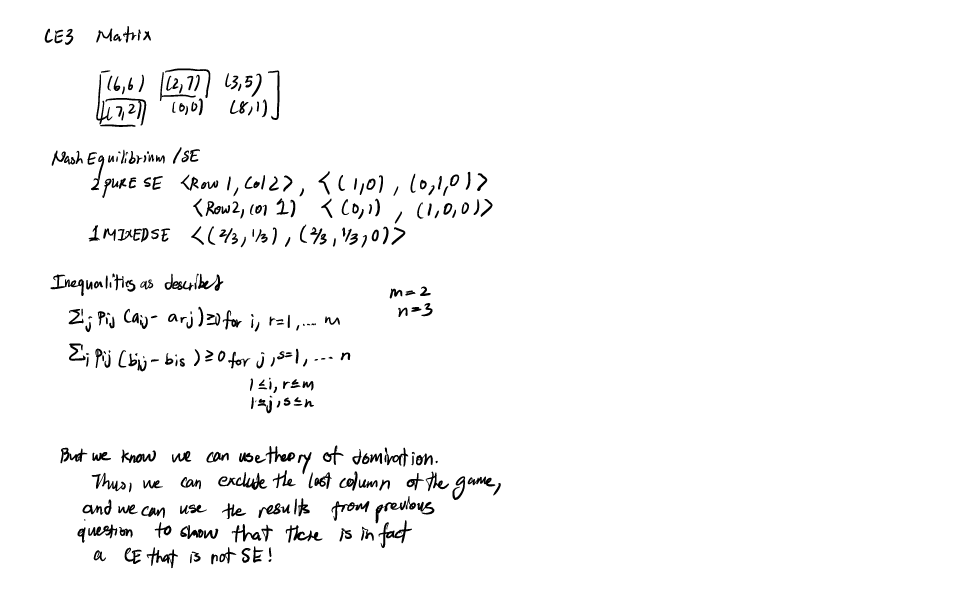 CE3 Matrix
[(6,6) (2,7) (3,5)
(7,2) (0,0) (8,1)]
Nash Equilibrium / SE
2 PURE SE <Row 1, Col 2>, <(1,0), (0,1,0)>
<Row 2, Col 1) <(0,1), (1,0,0)>
1 MIXED SE <(2/3, 1/3), (2/3, 1/3, 0)>
Inequalities as described
m=2
n=3
Σj Pij (aij - arj) ≥0 for i, r=1, ... m
Σi Pij (bij - bis) ≥0 for j, s=1, ... n
1 ≤ i, r ≤ m
1 ≤ j, s ≤ n
But we know we can use theory of domination.
Thus, we can exclude the last column of the game,
and we can use the results from previous
question to show that there is in fact
a CE that is not SE!